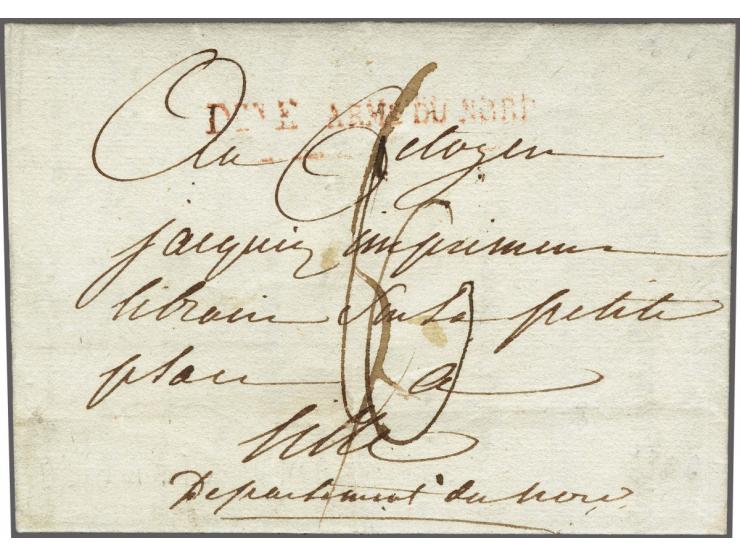 DVI E ARME DU NORD
Au Citoyen
jacquez imprimeur
libraire sur la petite
place a
lille
Departement du nord